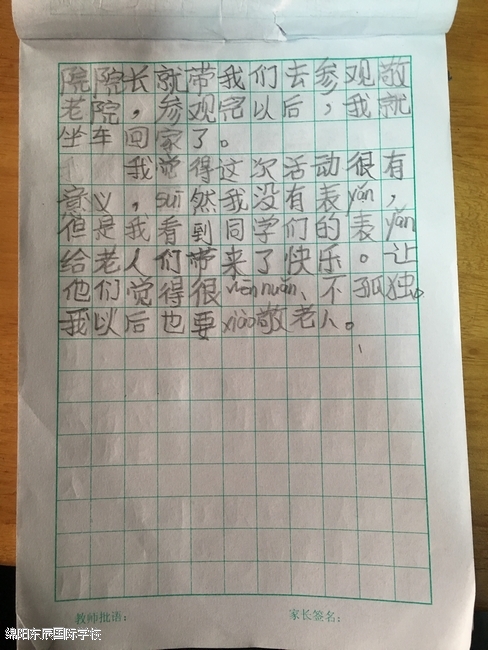 院院长就带我们去参观敬
老院，参观完以后，我就
坐车回家了。
我觉得这次活动很有
意义，suī然我没有表yǎn，
但是我看到同学们的表yǎn
给老人们带来了快乐。让
他们觉得很 nuǎn、不孤独。
我以后也要xiào敬老人。
教师批语：
家长签名：
绵阳东辰国际学校